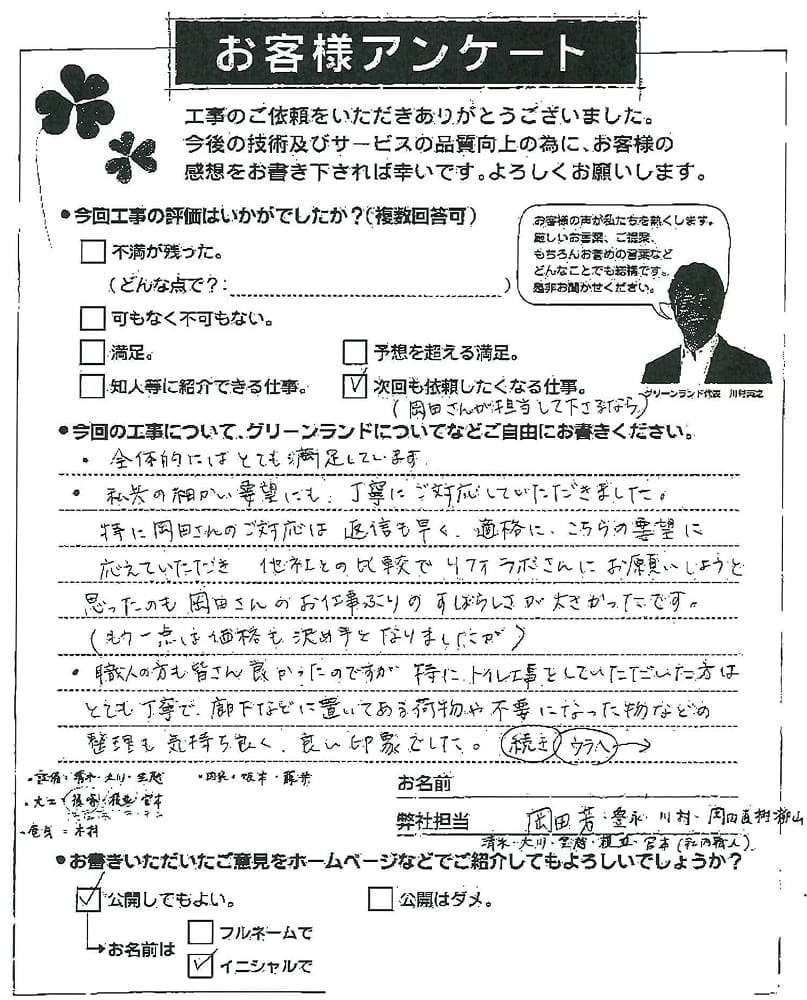 お客様アンケート
工事のご依頼をいただきありがとうございました。
今後の技術及びサービスの品質向上の為に、お客様の
感想をお書き下されば幸いです。よろしくお願いします。
●今回工事の評価はいかがでしたか?(複数回答可)
不満が残った。
(どんな点で?: )
可もなく不可もない。
満足。
予想を超える満足。
知人等に紹介できる仕事。
次回も依頼したくなる仕事。
(岡田さんが担当して下さるなら)
お客様の声が私たちを熱くします。
厳しいお言葉、ご提案、
もちろんお誉めの言葉など
どんなことでも結構です。
是非お聞かせください。
グリーンランド代表 川村
●今回の工事について、グリーンランドについてなどご自由にお書きください。
・全体的にはとても満足しています。
・私共の細かい要望にも、丁寧にご対応していただきました。
特に岡田さんのご対応は返信も早く、適格に、こちらの要望に
応えていただき 他社との比較でリフォラボさんにお願いしようと
思ったのも岡田さんのお仕事ぶりのすばらしさが大きかったです。
(もう一点は価格も決め手となりましたが)
・職人の方も皆さん良かったのですが 特に、トイレ工事をしていただいた方は
とても丁寧で、廊下などに置いてある荷物や不要になった物などの
整理も気持ち良く、良い印象でした。 続き ウラへ→
・設備:清水・大川・
・内装:坂本・藤井
・大工: 宮本
・電気=木村
お名前
弊社担当 岡田芳・豊永・川村・岡田直樹
清水・大川・ ・宮本(社内職人)
●お書きいただいたご意見をホームページなどでご紹介してもよろしいでしょうか?
公開してもよい。
公開はダメ。
→お名前は
フルネームで
イニシャルで